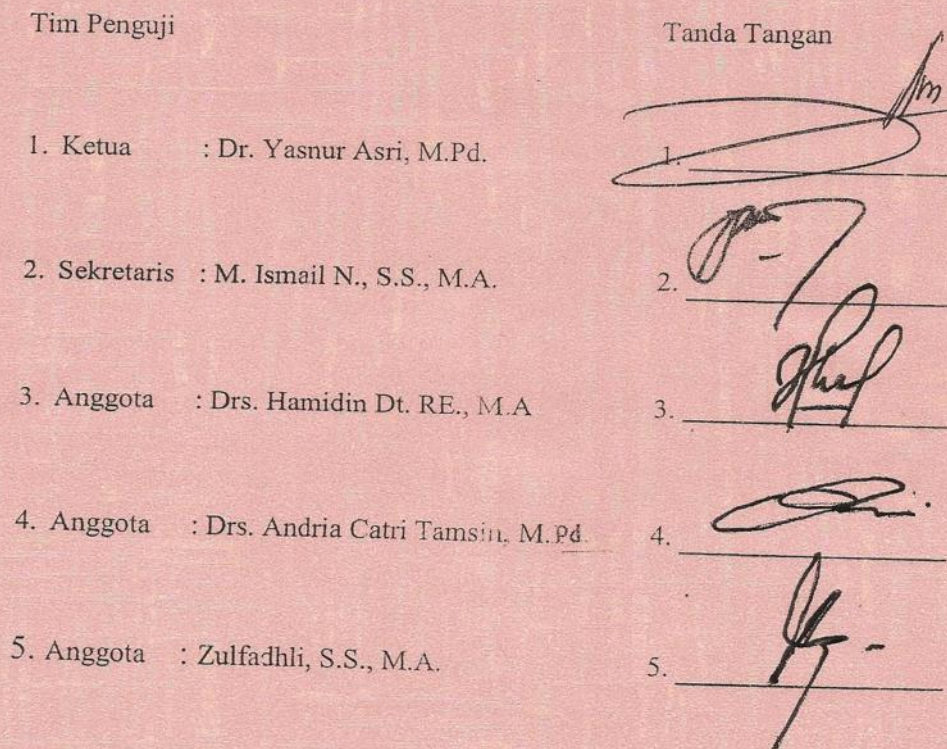 Tim Penguji Tanda Tangan
1. Ketua : Dr. Yasnur Asri, M.Pd. 1.
2. Sekretaris : M. Ismail N., S.S., M.A. 2.
3. Anggota : Drs. Hamidin Dt. RE., M.A 3.
4. Anggota : Drs. Andria Catri Tamsin, M.Pd. 4.
5. Anggota : Zulfadhli, S.S., M.A. 5.